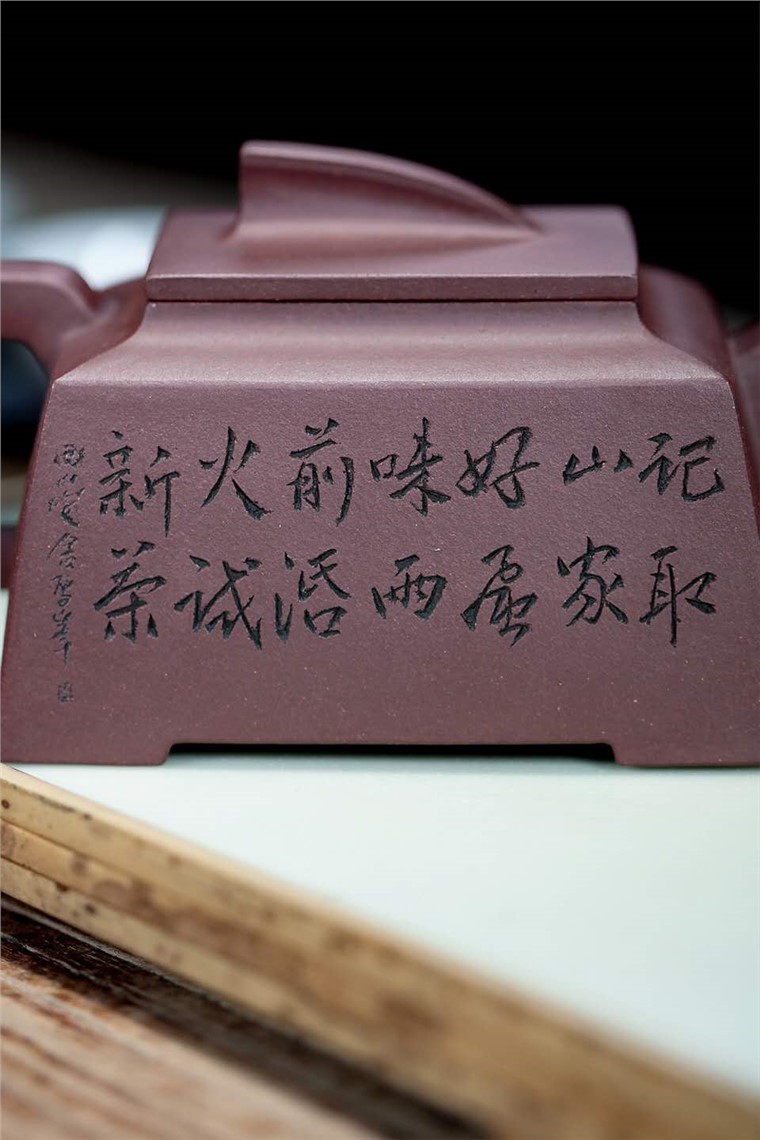 记取
山家
好風
味雨
前活
火试
新茶